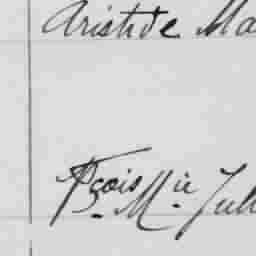 Aristide Ma
Fçois Mie Jul